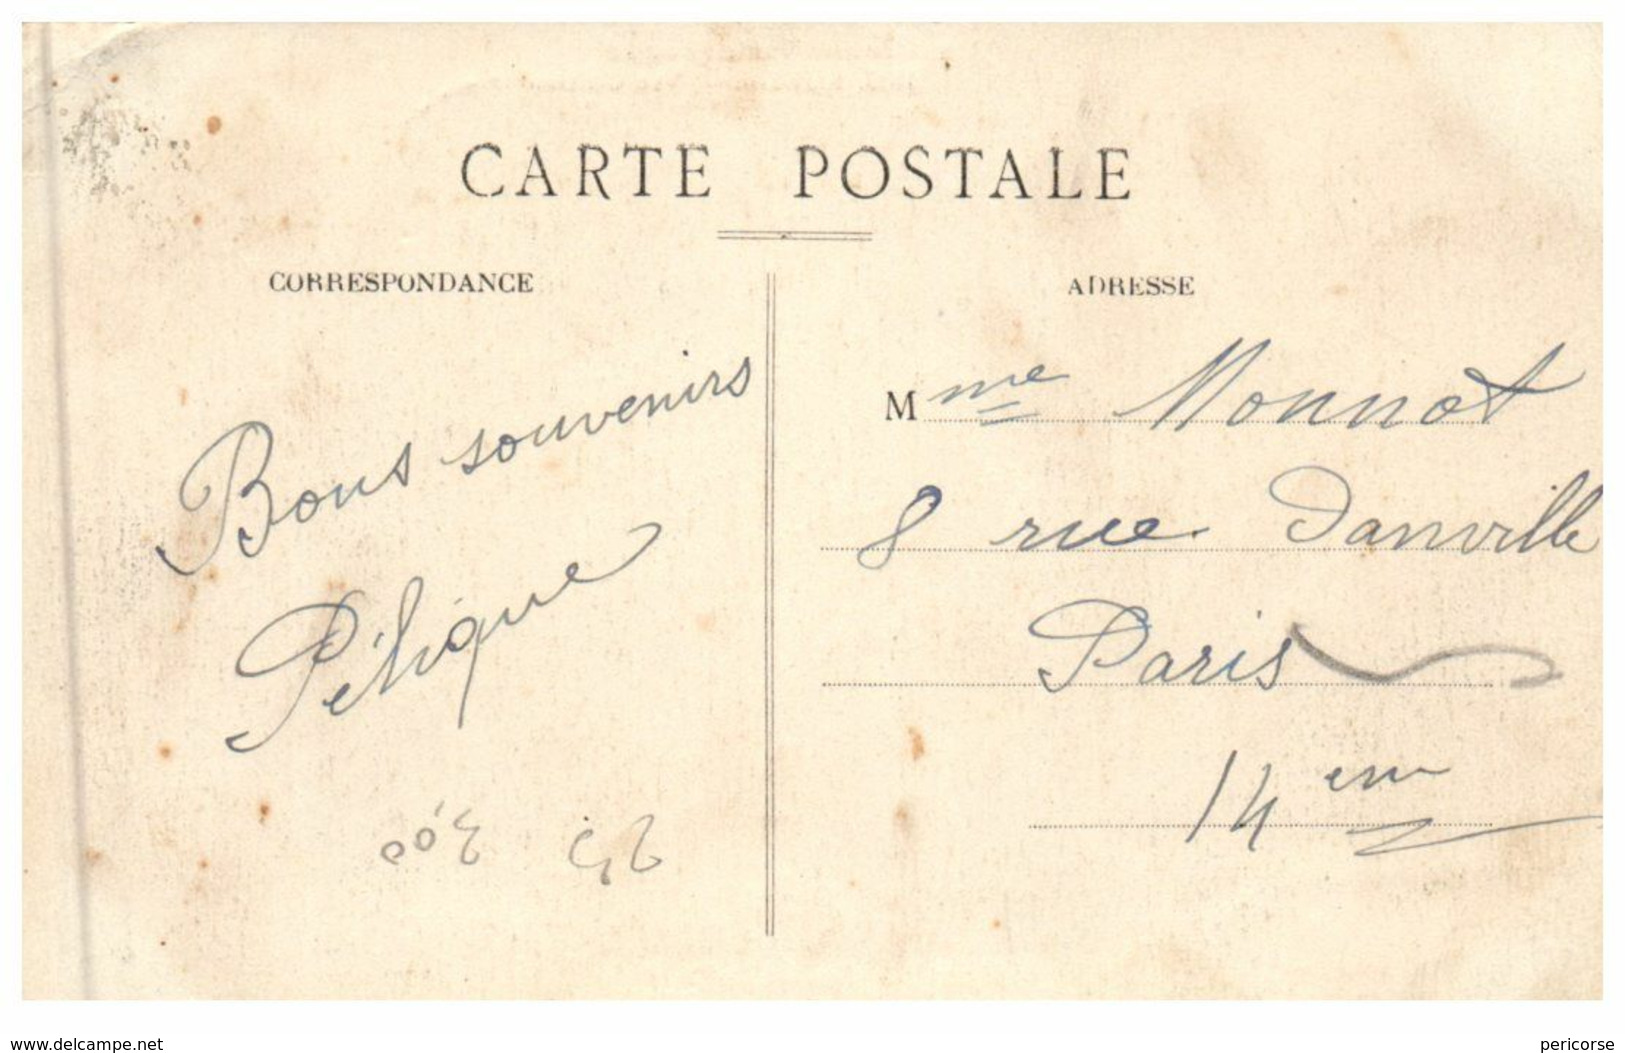 CARTE POSTALE
CORRESPONDANCE
Bons souvenirs
ADRESSE
Mme Monnot
8 rue Danville
Paris
14em
www.delcampe.net
pericorse